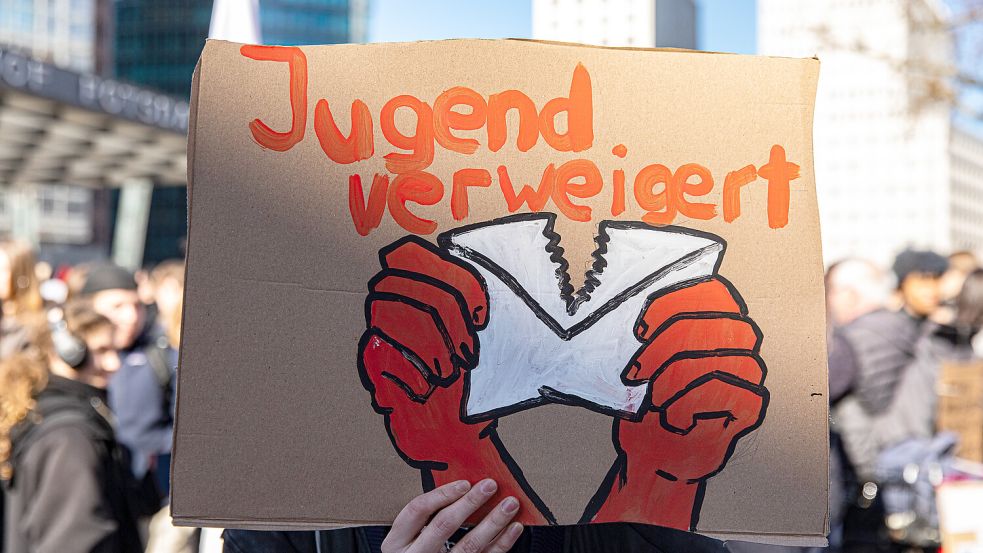 Jugend
verweigert